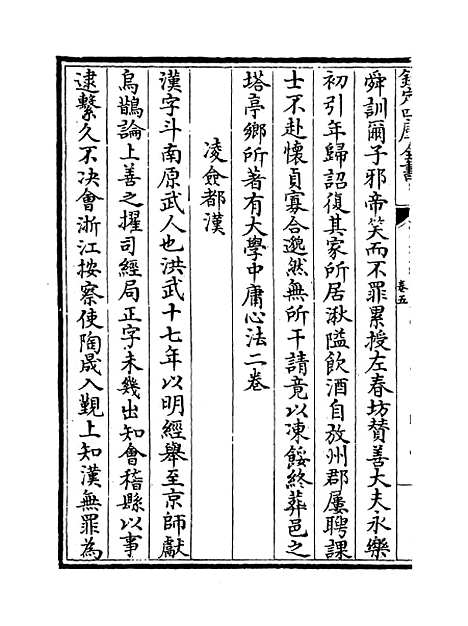 欽定四庫全書
卷五
舜訓爾子邪帝笑而不罪累授左春坊贊善大夫永樂
初引年歸詔復其家所居湫隘飲酒自放州郡屢聘課
士不赴懷貞寡合邈然無所干請竟以凍餒終葬邑之
塔亭鄉所著有大學中庸心法二卷
凌僉都漢
漢字斗南原武人也洪武十七年以明經舉至京師獻
烏鵲論上善之擢司經局正字未幾出知會稽縣以事
逮繫久不决會浙江按察使陶晟入覲上知漢無罪為